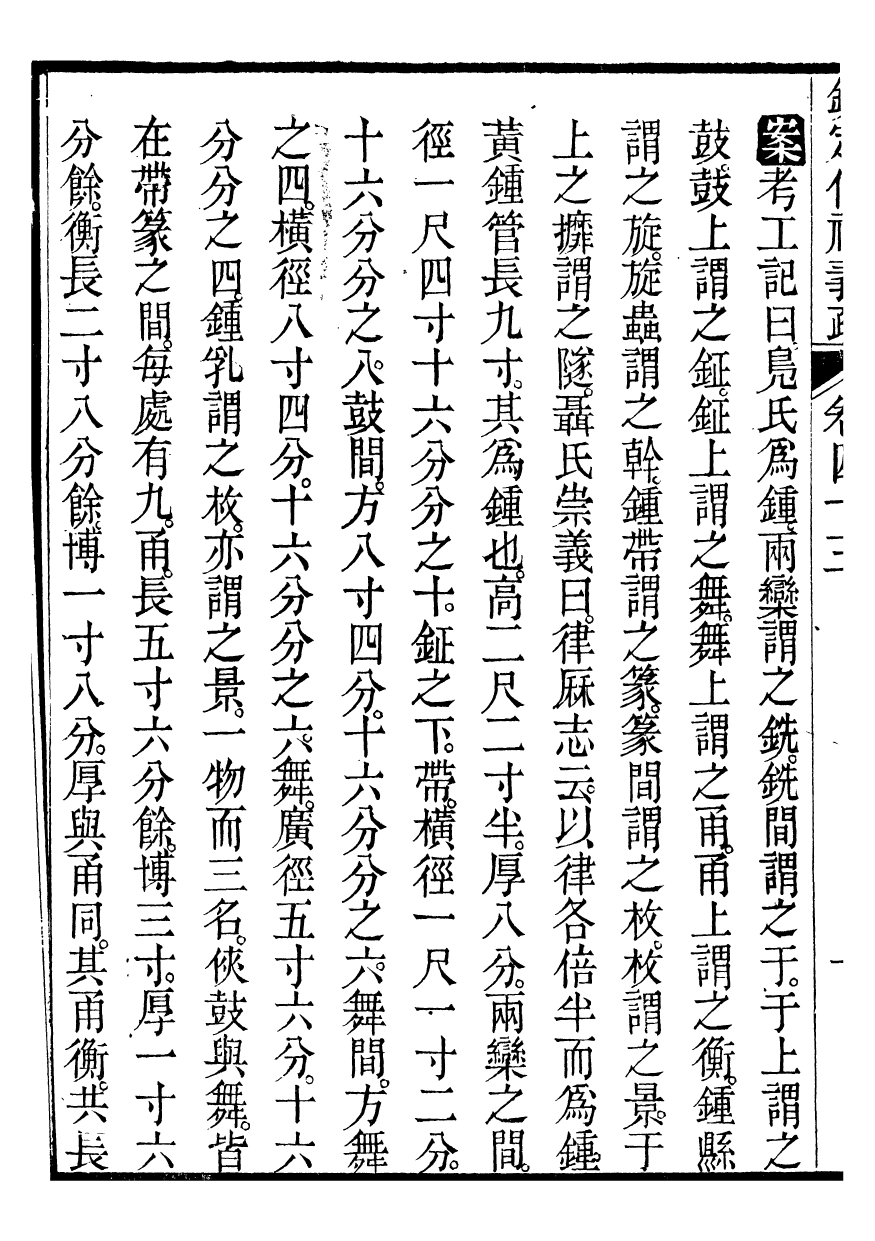 欽定儀禮義疏 卷四十三 一
案考工記曰鳧氏爲鍾兩欒謂之銑銑間謂之于于上謂之
鼓鼓上謂之鉦鉦上謂之舞舞上謂之甬甬上謂之衡鍾縣
謂之旋旋蟲謂之幹鍾帶謂之篆篆間謂之枚枚謂之景于
上之攠謂之隧聶氏崇義曰律厤志云以律各倍半而爲鍾
黃鍾管長九寸其爲鍾也高二尺二寸半厚八分兩欒之間
徑一尺四寸十六分分之十鉦之下帶橫徑一尺一寸二分
十六分分之八鼓間方八寸四分十六分分之六舞間方舞
之四橫徑八寸四分十六分分之六舞廣徑五寸六分十六
分分之四鍾乳謂之枚亦謂之景一物而三名俠鼓與舞皆
在帶篆之間每處有九甬長五寸六分餘博三寸厚一寸六
分餘衡長二寸八分餘博一寸八分厚與甬同其甬衡共長